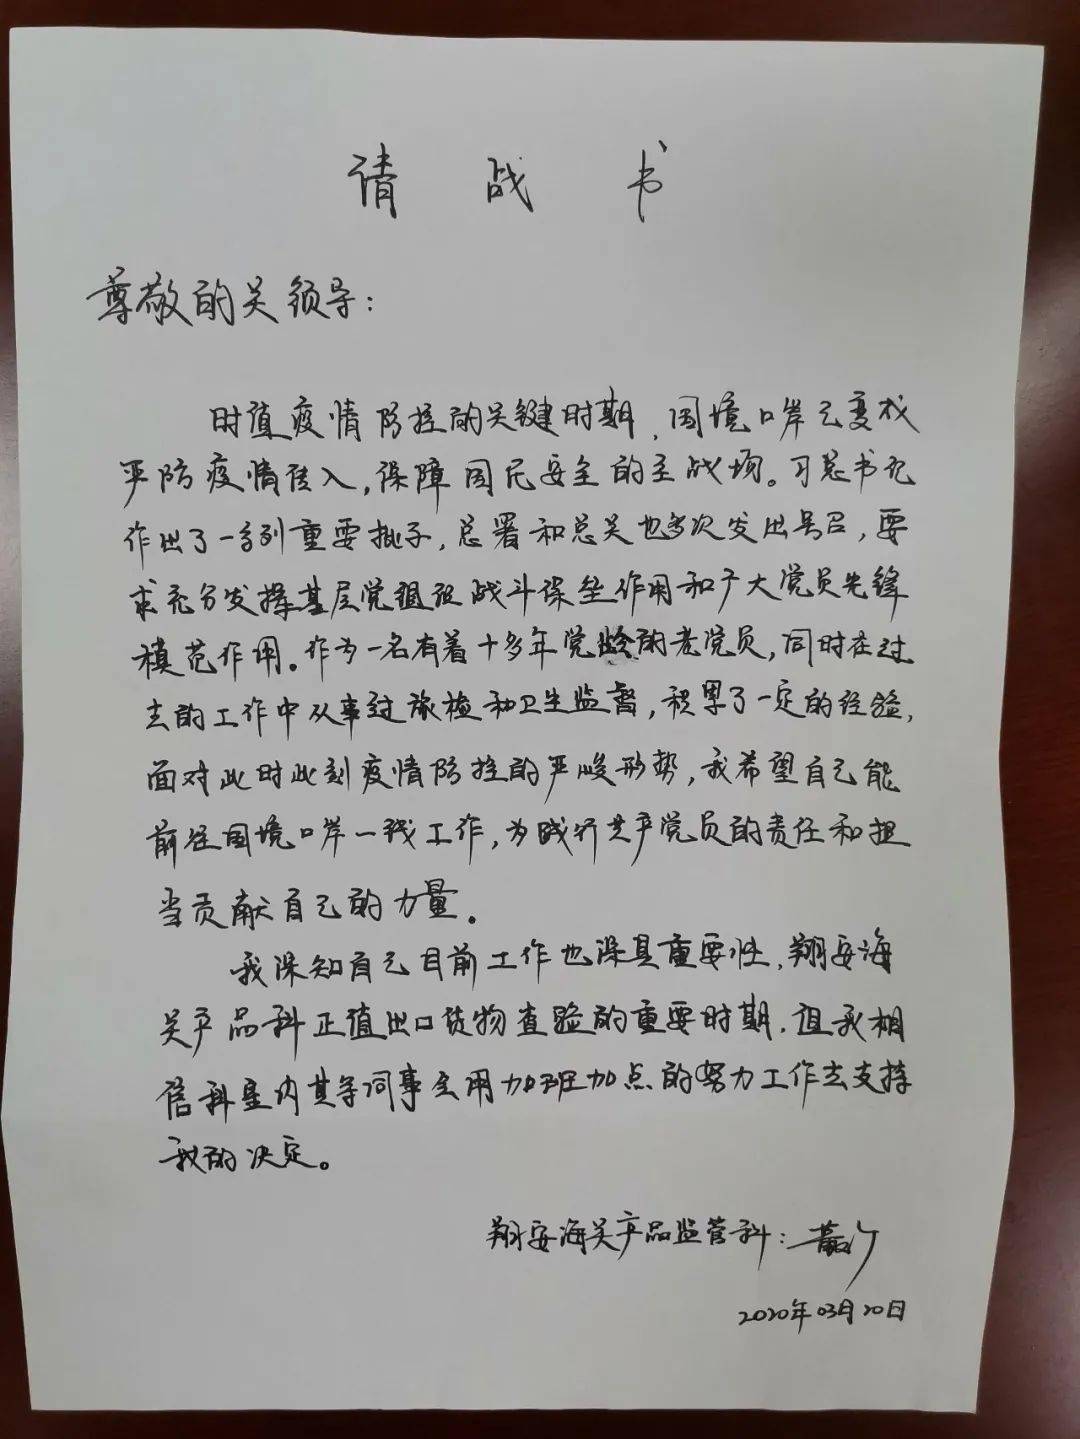 请战书
尊敬的关领导：
时值疫情防控的关键时期，国境口岸已变成
严防疫情传入，保障国民安全的主战场。习总书记
作出了一系列重要批示，总署和总关也多次发出号召，要
求充分发挥基层党组织战斗保垒作用和广大党员先锋
模范作用。作为一名有着十多年党龄的老党员，同时在过
去的工作中从事过旅检和卫生监督，积累了一定的经验，
面对此时此刻疫情防控的严峻形势，我希望自己能
前往国境口岸一线工作，为践行共产党员的责任和担
当贡献自己的力量。
我深知自己目前工作也深具重要性，翔安海
关产品科正值出口货物查验的重要时期，但我相
信科室内其等同事会用加班加点的努力工作去支持
我的决定。
翔安海关产品监管科：
2020年03月20日